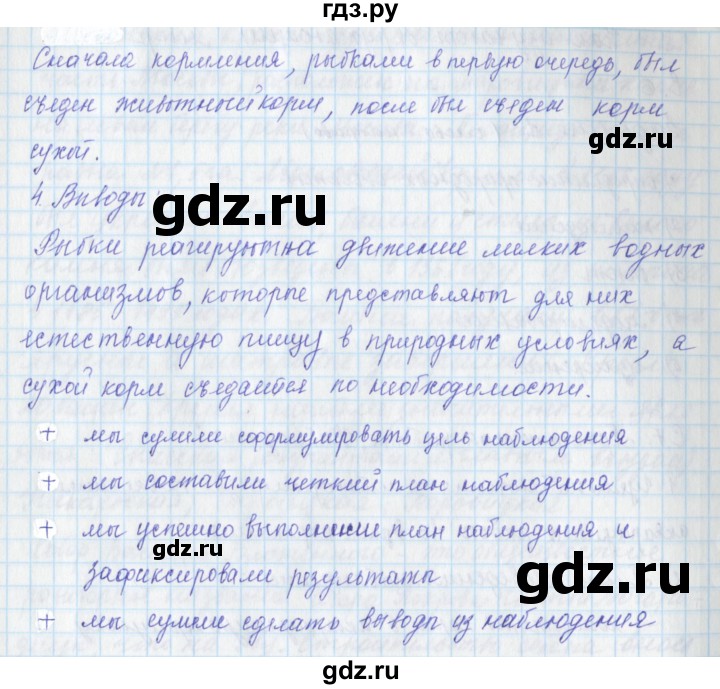 гдз.ру
Сначала кормления, рыбками в первую очередь, был
съеден животный корм, после был съеден корм
сухой.
4. Выводы:
gdz.ru
gdz.ru
Рыбки реагируют на движение мелких водных
организмов, которые представляют для них
естественную пищу в природных условиях, а
сухой корм съедается по необходимости.
+ мы сумели сформулировать цель наблюдения
gdz.ru
+ мы составили четкий план наблюдения
+ мы успешно выполнили план наблюдения и
gdz.ru
зафиксировали результаты
gdz.ru
+ мы сумели сделать выводы из наблюдения
gdz.ru
gdz.ru